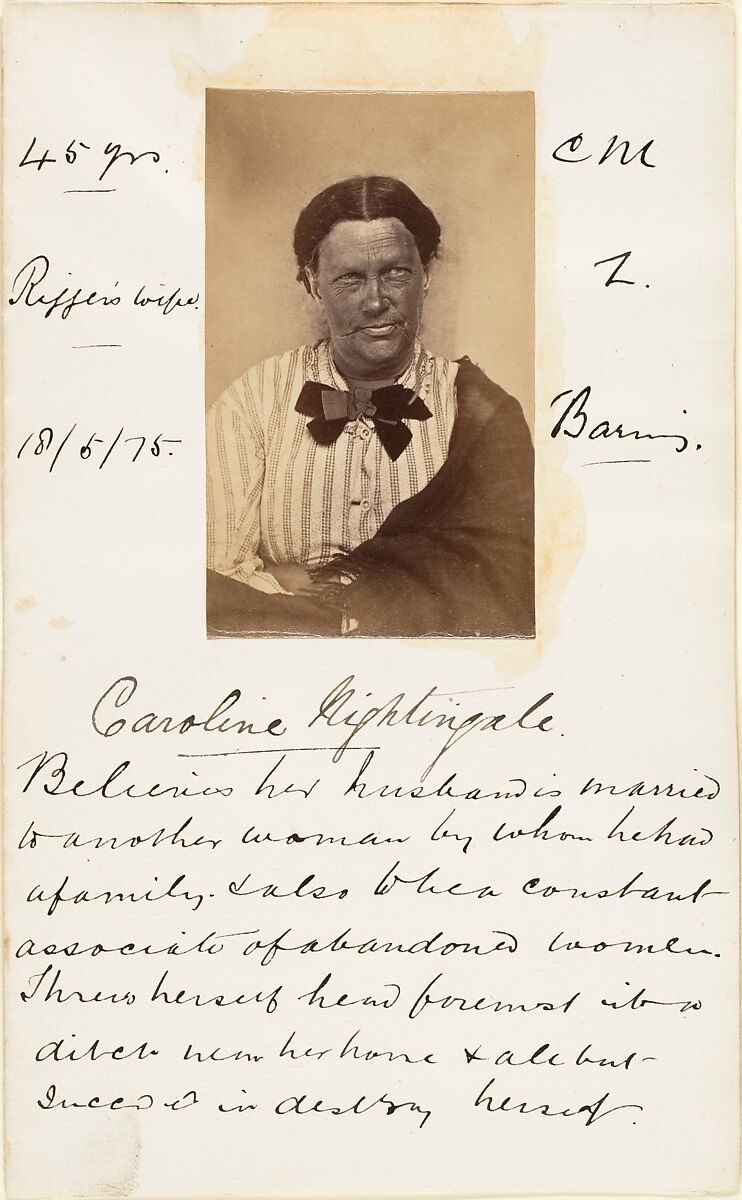 45 yrs.
C M
Rigger's wife.
L.
18/5/75.
Caroline Nightingale.
Believes her husband is married
to another woman by whom he had
a family. & also to be a constant
associate of abandoned women.
Threw herself head foremost into a
ditch near her home & all but
succeed in destroy herself.